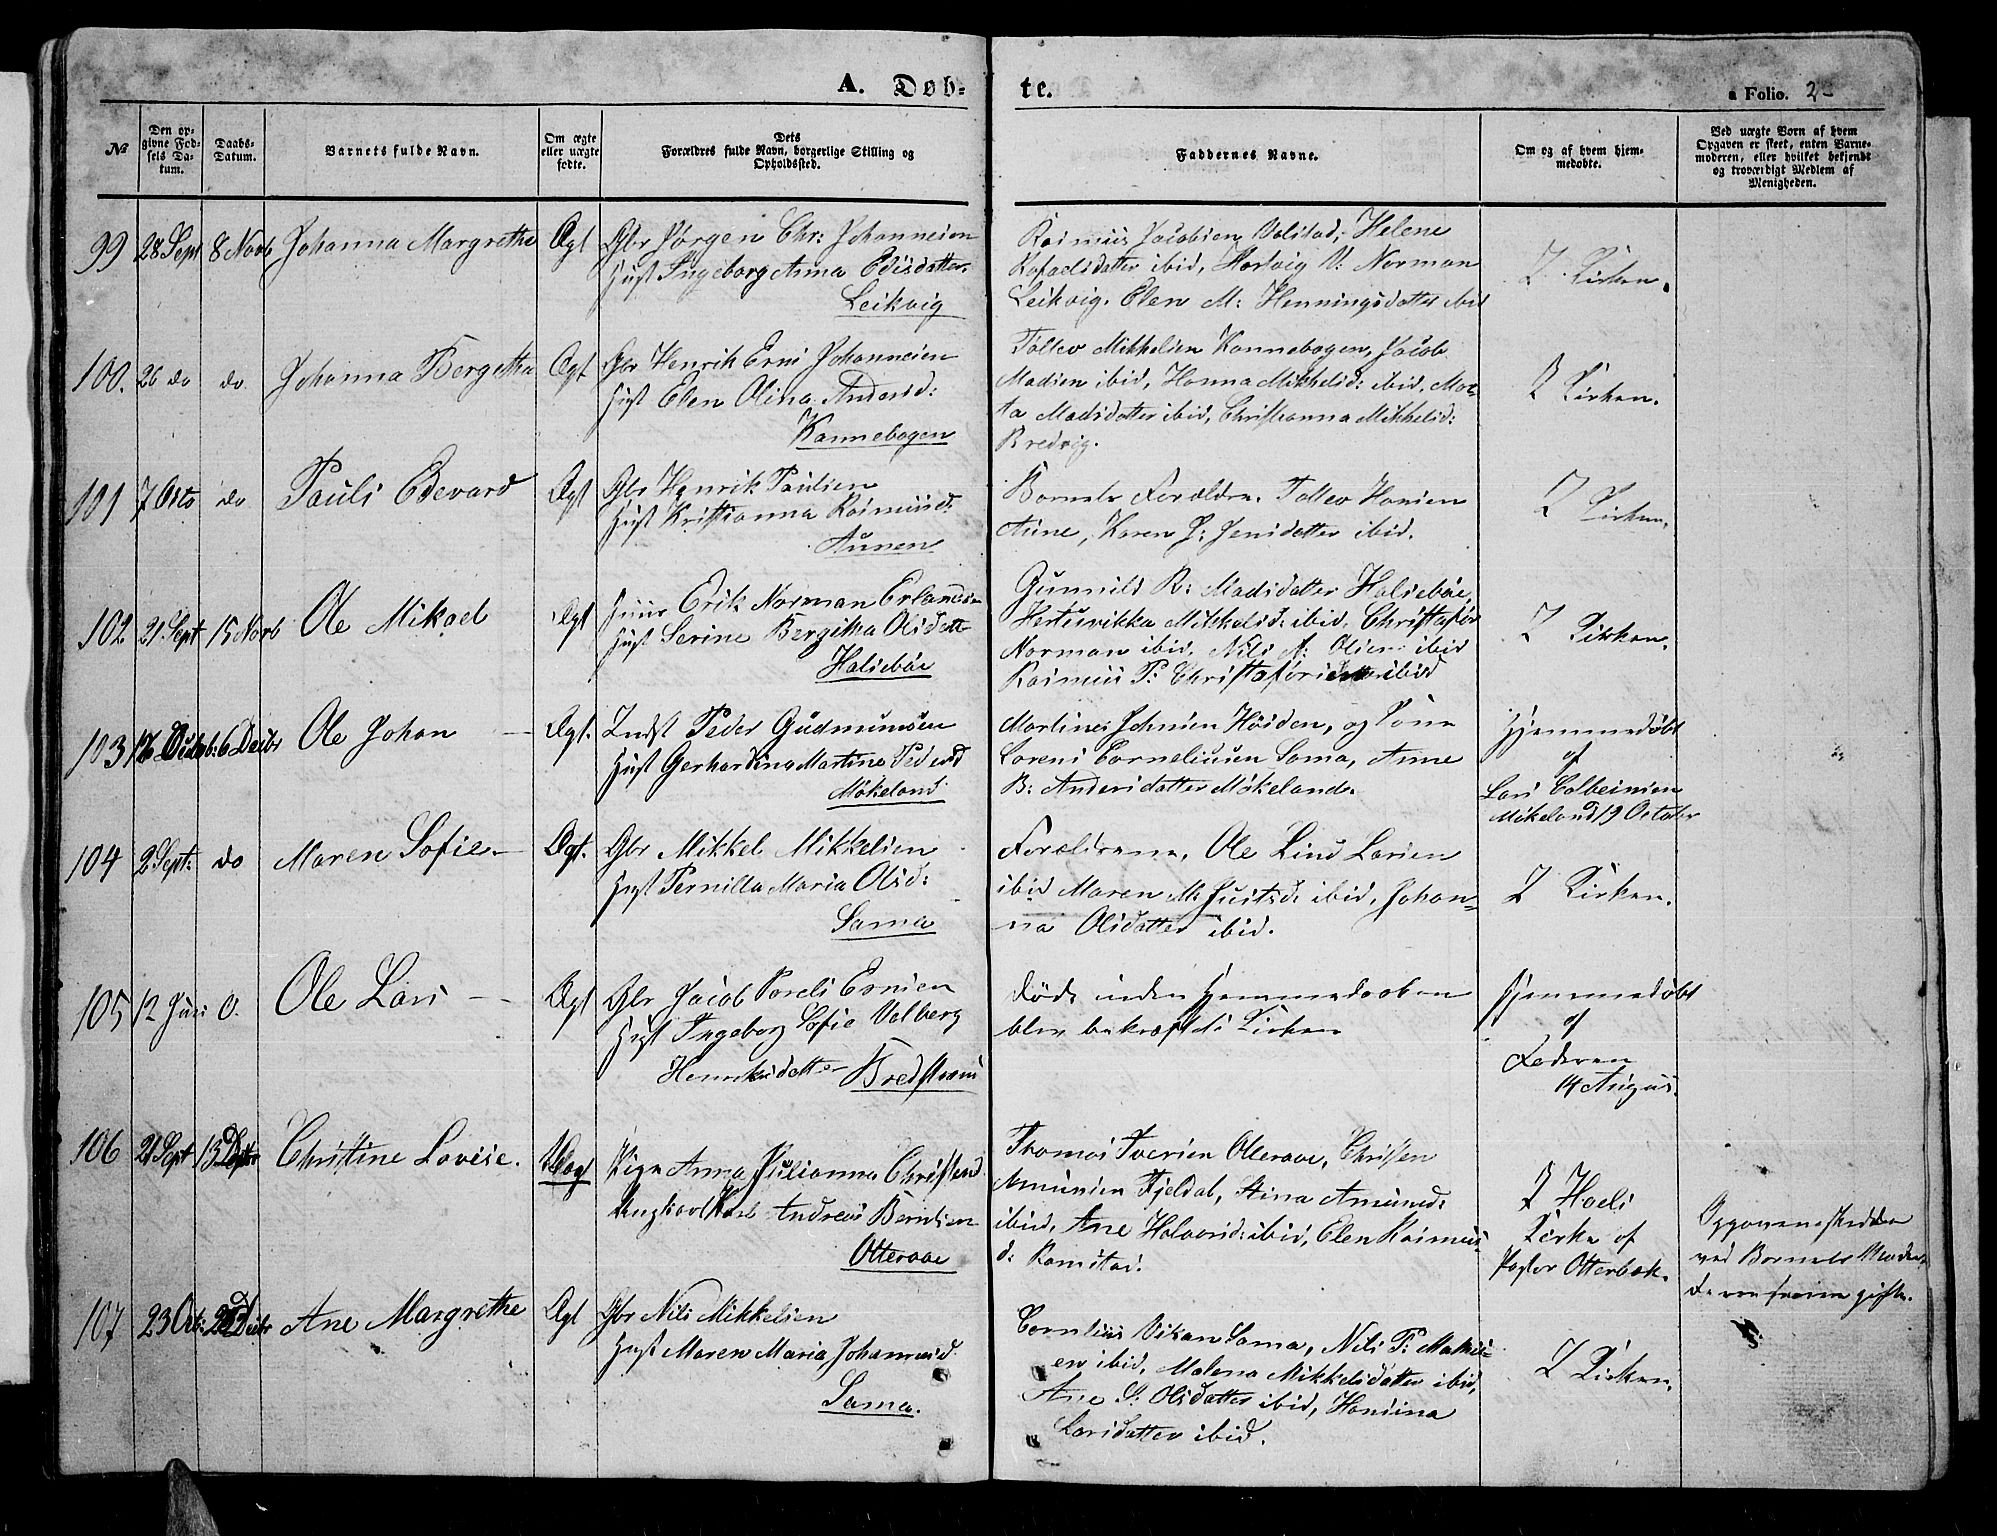 A. Døb-te.
a Folio. 2
No
Den opgivne Fødsels Datum.
Daabs-Datum.
Barnets fulde Navn.
Om ægte eller uægte fødte.
Dets Forældres fulde Navn, borgerlige Stilling og Opholdssted.
Faddernes Navne.
Om og af hvem hjemmedøbte.
Ved uægte Born af hvem Opgaven er skeet, enten Barnemoderen, eller hvilket bekjendt og troværdigt Medlem af Menigheden.
99 28 Sept 8 Novb Johanna Margrethe Ægt
Gbr Jørgen Chr: Johannesen
Hust Ingeborg Anna Edisdatter
Leikvig
Rasmus Jacobsen Valstad, Helene
Rafaelsdatter ibid, Hartvig U: Norman
Leikvig. Elen M: Henningsdatter ibid
I Kirken.
100. 26 do do Johanna Bergetha Ægt
Gbr Henrik Erns Johannesen
Hust Elen Olina Andersd:
Kannebogen
Tollev Mikkelsen Kannebogen, Jacob
Madsen ibid, Hanna Mikkelsd: ibid, Mar-
ta Madsdatter ibid, Christianna Mikkelsd:
Bredvig.
I Kirken.
101 7 Octo do Pauls Edevard Ægt
Gbr Henrik Paulsen
Hust Kristianna Rasmusd:
Aunen
Barnets Forældre. Tollev Hansen
Aune, Karen J: Jensdatter ibid.
I Kirken.
102 21 Sept 15 Novb Ole Mikael Ægt
Huus Erik Norman Erlandsen
Hust Serine Bergitha Olsdatt
Halsebøe
Gunnild R: Madsdatter Halsebøe,
Mikkelsd: ibid, Christaför
Norman ibid, Nils A: Olsen ibid
Rasmus P: Christaförsen ibid
I Kirken.
103 6 Decbr Ole Johan Ægt.
Indst Peder Gudmunsen
Hust Gerhardina Martina Pedersd
Møkeland
Martines Johnsen Høiden, og Kone
Lorens Corneliusen Sama, Anne
B: Andersdatter Møkeland.
Hjemmedøbt
af
Lars Colbeinsen
Møkeland 19 October
104 2 Sept: do Maren Sofie Ægt.
Gbr Mikkel Mikkelsen
Hust Pernilla Maria Olsd:
Sama
Forældrene, Ole Lind Larsen
ibid Maren M: Justsd: ibid, Johan-
na Olsdatter ibid.
I Kirken.
105 12 Juni 0. Ole Lars Ægt
Gbr Jacob Parels Ernsen
Hust Ingeborg Sofie Valberg
Henriksdatter Bredstrøm
Døde inden Hjemmedaaben
blev bekræftet i Kirken
Hjemmedøbt
af
Faderen
14 August.
106 21 Sept 13 Christine Lovise. Uægt
Pige Anna Julianna Christensd
Ungkarl Andreas Berntsen
Otteraae
Thomas Iversen Otteraae, Christen
Amundsen Fjeldal, Stina Amunds
ibid, Ane Halvorsd: ibid, Elen Rasmus-
d: Ramstad.
I Hols
Kirke af
Pastor Otterbek.
Opgaven skedde
ved Barnets Moder
107 23 Oct: Decbr Ane Margrethe Ægt
Gbr Nils Mikkelsen
Hust Maren Maria Johannesd
Sama.
Cornelius Vikan Sama, Nils P: Mathis-
en ibid, Malena Mikkelsdatter ibid,
Ane S: Olsdatter ibid, Hansina
Larsdatter ibid.
I Kirken.